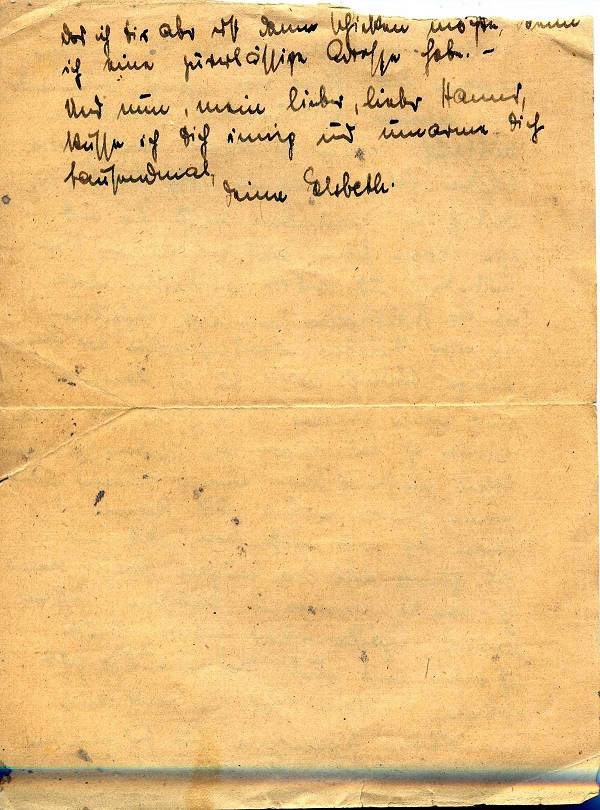 das ich dir aber erst dann schicken möchte, wenn
ich eine zuverlässige Adresse habe. –
Und nun, mein lieber, lieber Hannes,
küsse ich Dich innig und umarme Dich
tausendmal,
Deine Elsbeth.